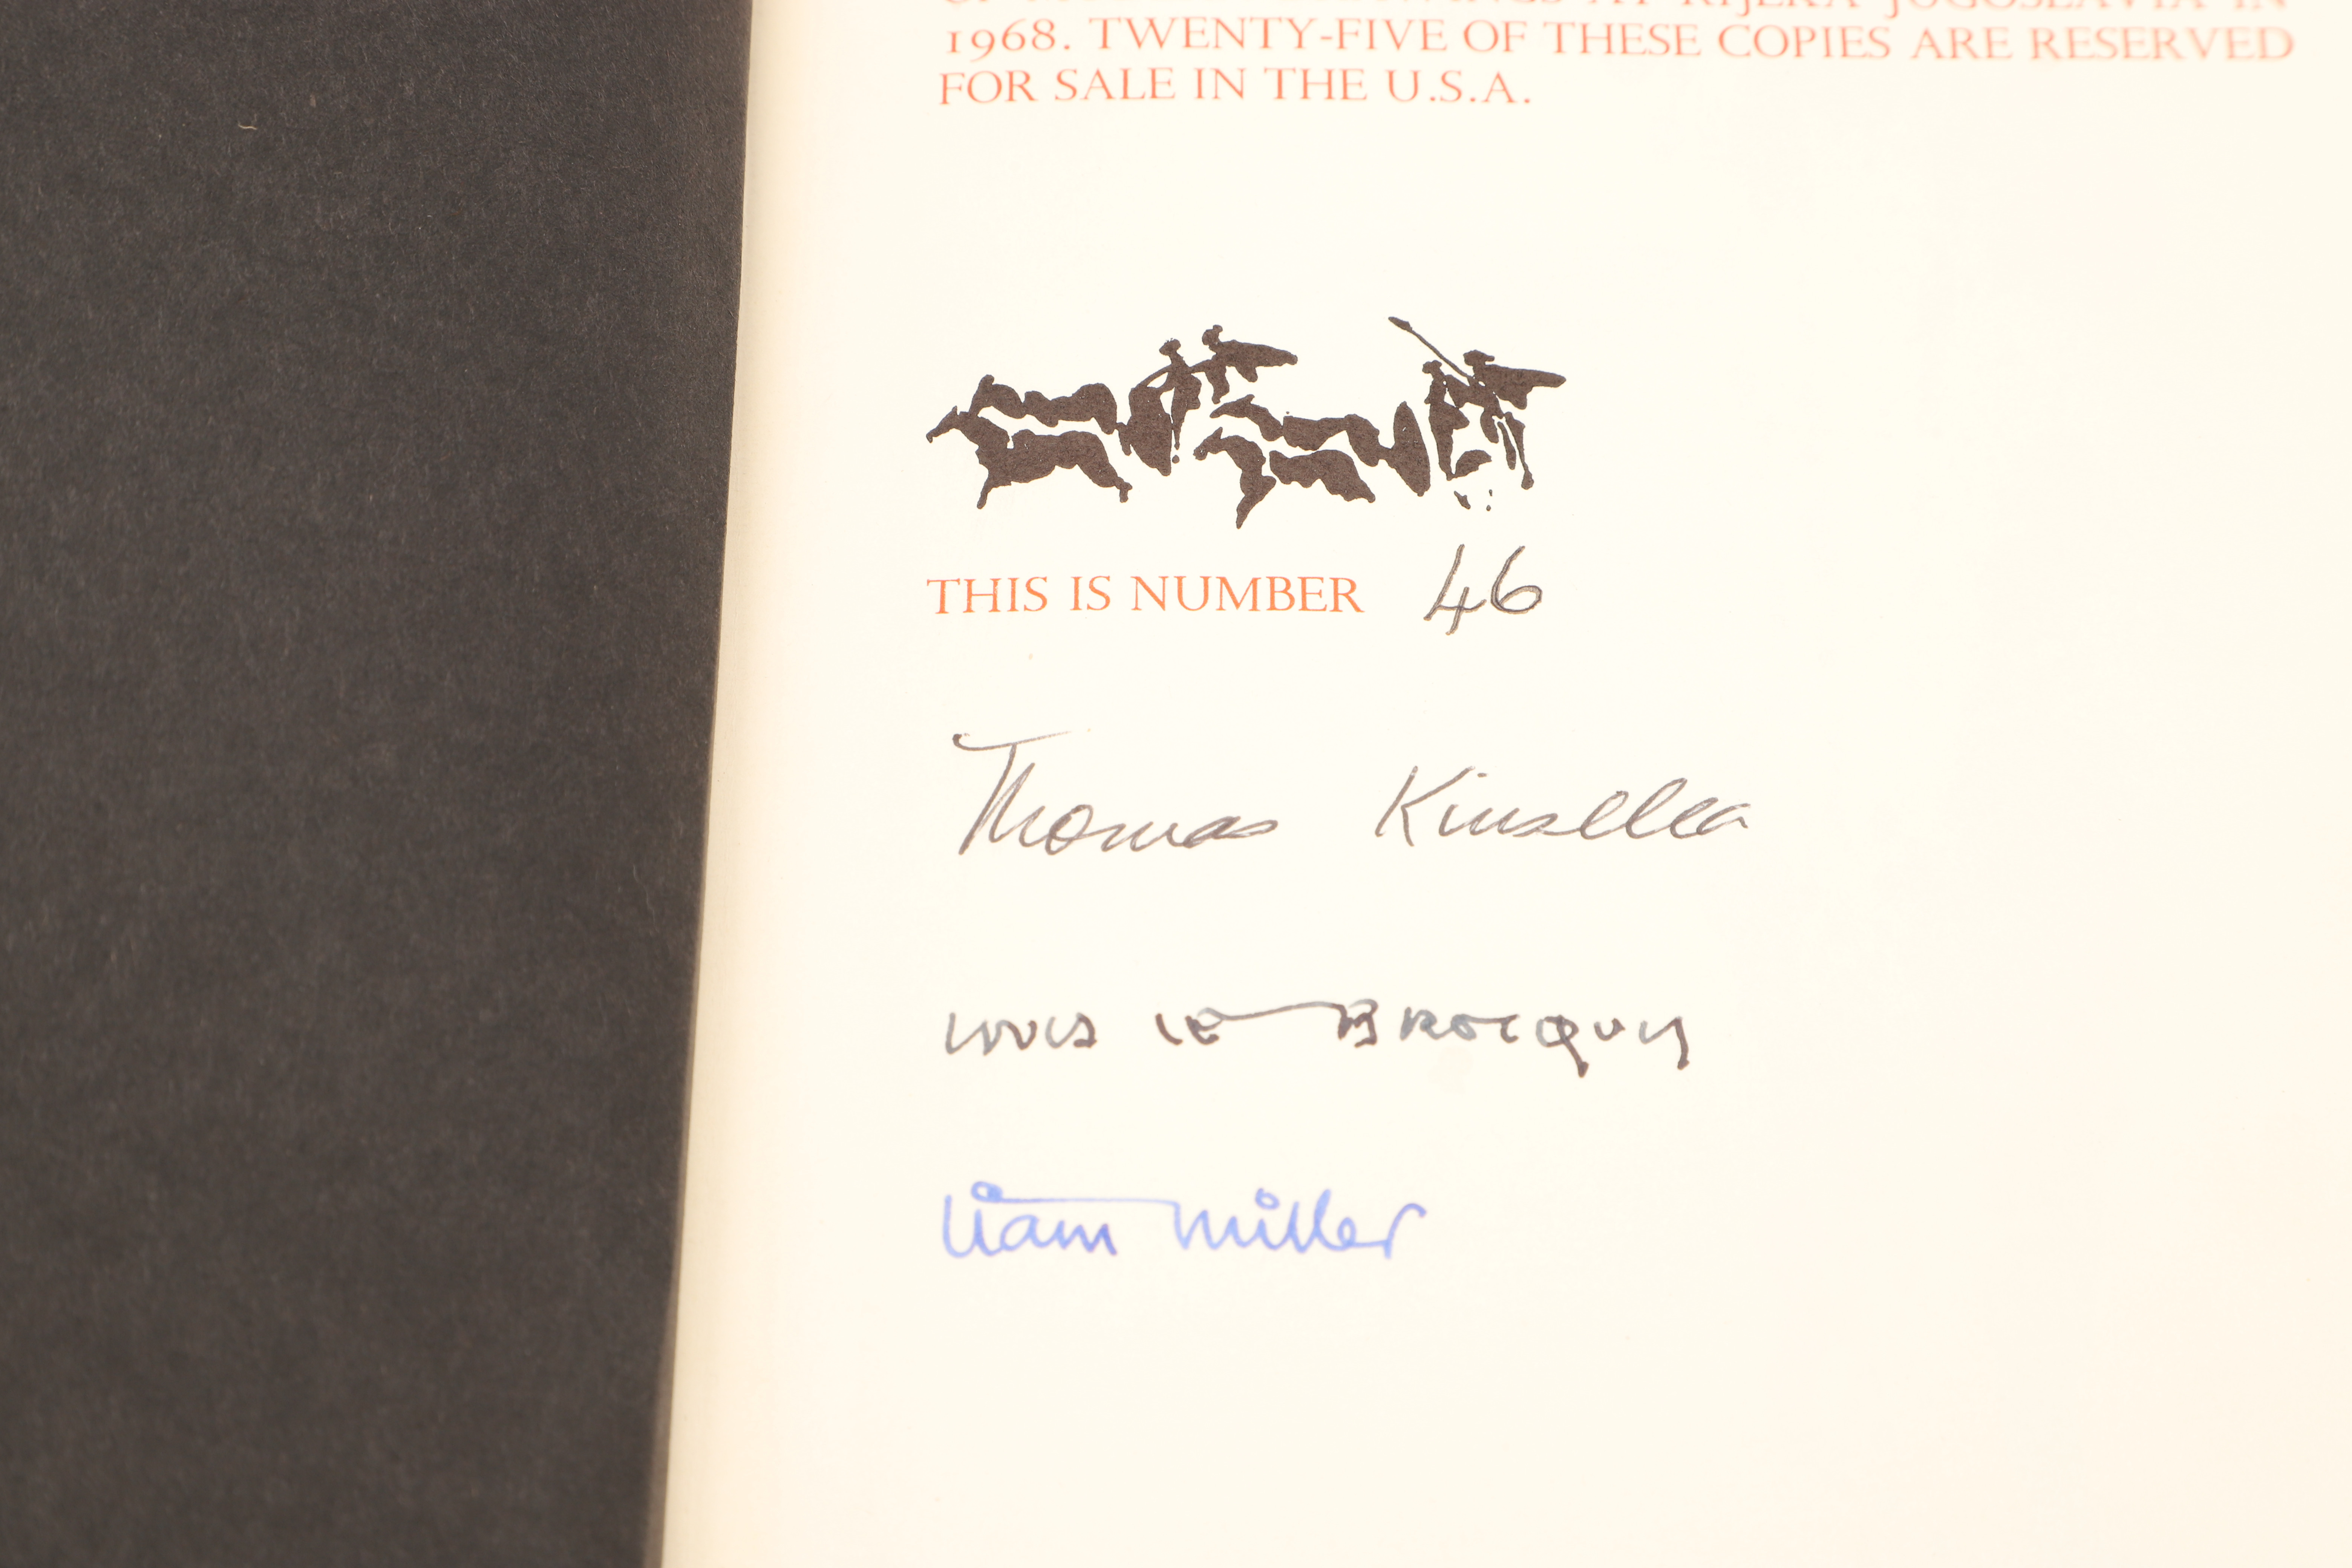 AT RIJEKA JUGOSLAVIA IN
1968. TWENTY-FIVE OF THESE COPIES ARE RESERVED
FOR SALE IN THE U.S.A.
THIS IS NUMBER 46
Thomas Kinsella
Louis le Brocquy
Liam Miller